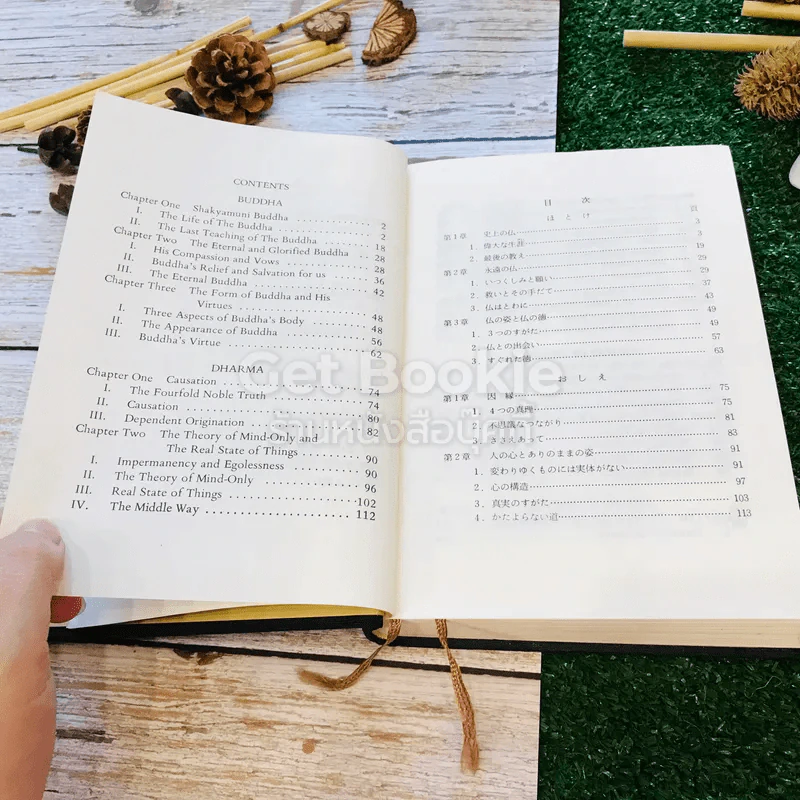 CONTENTS
BUDDHA
Chapter One Shakyamuni Buddha .......... 2
I. The Life of The Buddha .......... 2
II. The Last Teaching of The Buddha .......... 18
Chapter Two The Eternal and Glorified Buddha .......... 28
I. His Compassion and Vows .......... 28
II. Buddha's Relief and Salvation for us .......... 36
III. The Eternal Buddha .......... 42
Chapter Three The Form of Buddha and His
Virtues .......... 48
I. Three Aspects of Buddha's Body .......... 48
II. The Appearance of Buddha .......... 56
III. Buddha's Virtue .......... 62
DHARMA
Chapter One Causation .......... 74
I. The Fourfold Noble Truth .......... 74
II. Causation .......... 80
III. Dependent Origination .......... 82
Chapter Two The Theory of Mind-Only and
The Real State of Things .......... 90
I. Impermanency and Egolessness .......... 90
II. The Theory of Mind-Only .......... 96
III. Real State of Things .......... 102
IV. The Middle Way .......... 112
目 次
ほとけ 頁
第1章 史上の仏 .......... 3
1. 偉大な生涯 .......... 3
2. 最後の教え .......... 19
第2章 永遠の仏 .......... 29
1. いつくしみと願い .......... 29
2. 救いとその手だて .......... 37
3. 仏はとわに .......... 43
第3章 仏の姿と仏の徳 .......... 49
1. 3つのすがた .......... 49
2. 仏との出会い .......... 57
3. すぐれた徳 .......... 63
おしえ
第1章 因縁 .......... 75
1. 4つの真理 .......... 75
2. 不思議なつながり .......... 81
3. ささえあって .......... 83
第2章 人の心とありのままの姿 .......... 91
1. 変わりゆくものには実体がない .......... 91
2. 心の構造 .......... 97
3. 真実のすがた .......... 103
4. かたよらない道 .......... 113
Get Bookie
ร้านหนังสือบุ๊คกี้